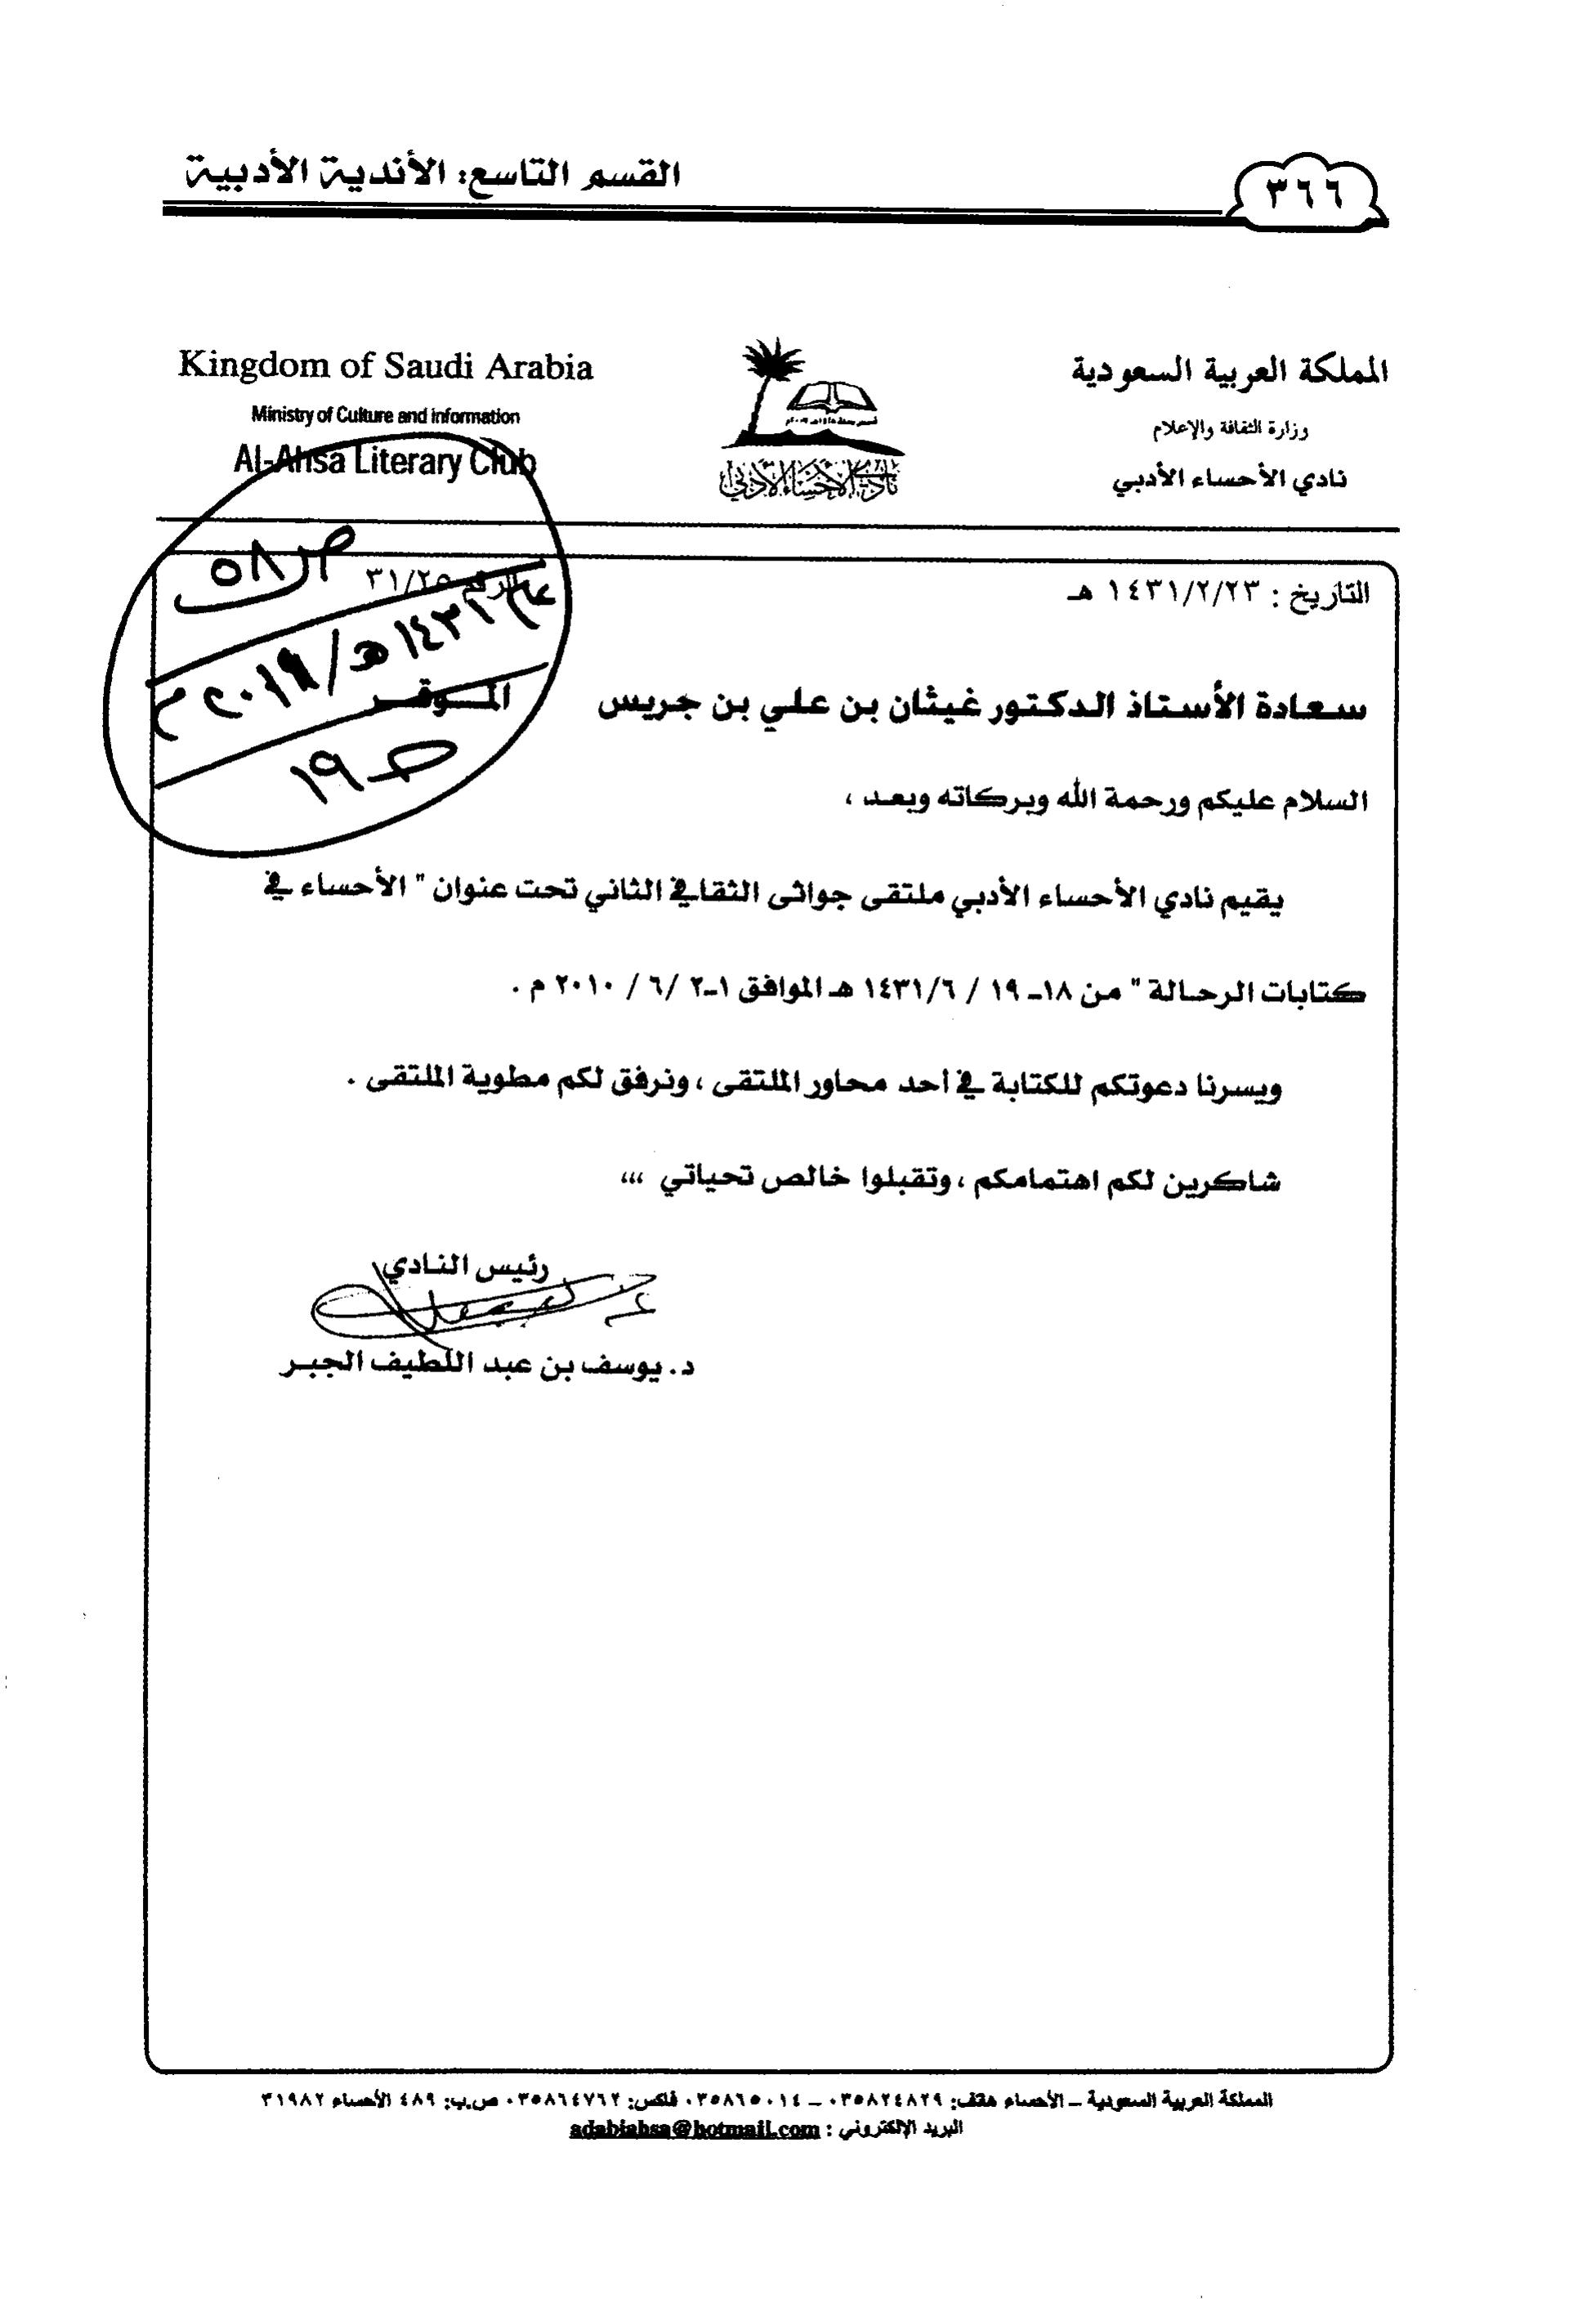 القسم التاسع: الأندية الأدبية
٣٦٦
المملكة العربية السعودية
وزارة الثقافة والإعلام
نادي الأحساء الأدبي
نادي الأحساء الأدبي
Kingdom of Saudi Arabia
Ministry of Culture and information
Al-Ahsa Literary Club
التاريخ : ١٤٣١/٢/٢٣ هـ
الرقم ٣١/٢٥
ص ٥٨
عام ١٤٣١هـ / م
ص ١٩
سعادة الأستاذ الدكتور غيثان بن علي بن جريس الموقر
السلام عليكم ورحمة الله وبركاته وبعد ،
يقيم نادي الأحساء الأدبي ملتقى جواثى الثقافي الثاني تحت عنوان " الأحساء في
كتابات الرحالة " من ١٨- ١٩ / ١٤٣١/٦ هـ الموافق ١-٢ /٦ / ٢٠١٠ م .
ويسرنا دعوتكم للكتابة في أحد محاور الملتقى ، ونرفق لكم مطوية الملتقى .
شاكرين لكم اهتمامكم ، وتقبلوا خالص تحياتي ،،،
رئيس النادي
د. يوسف بن عبد اللطيف الجبر
المملكة العربية السعودية – الأحساء هتف: ٠٣٥٨٢٤٨٢٩ – ٠٣٥٨٦٥٠١٤ فلكس: ٠٣٥٨٦٤٧٦٢ ص.ب: ٤٨٩ الأحساء ٣١٩٨٢
البريد الإلكتروني : adabiahsa@hotmail.com